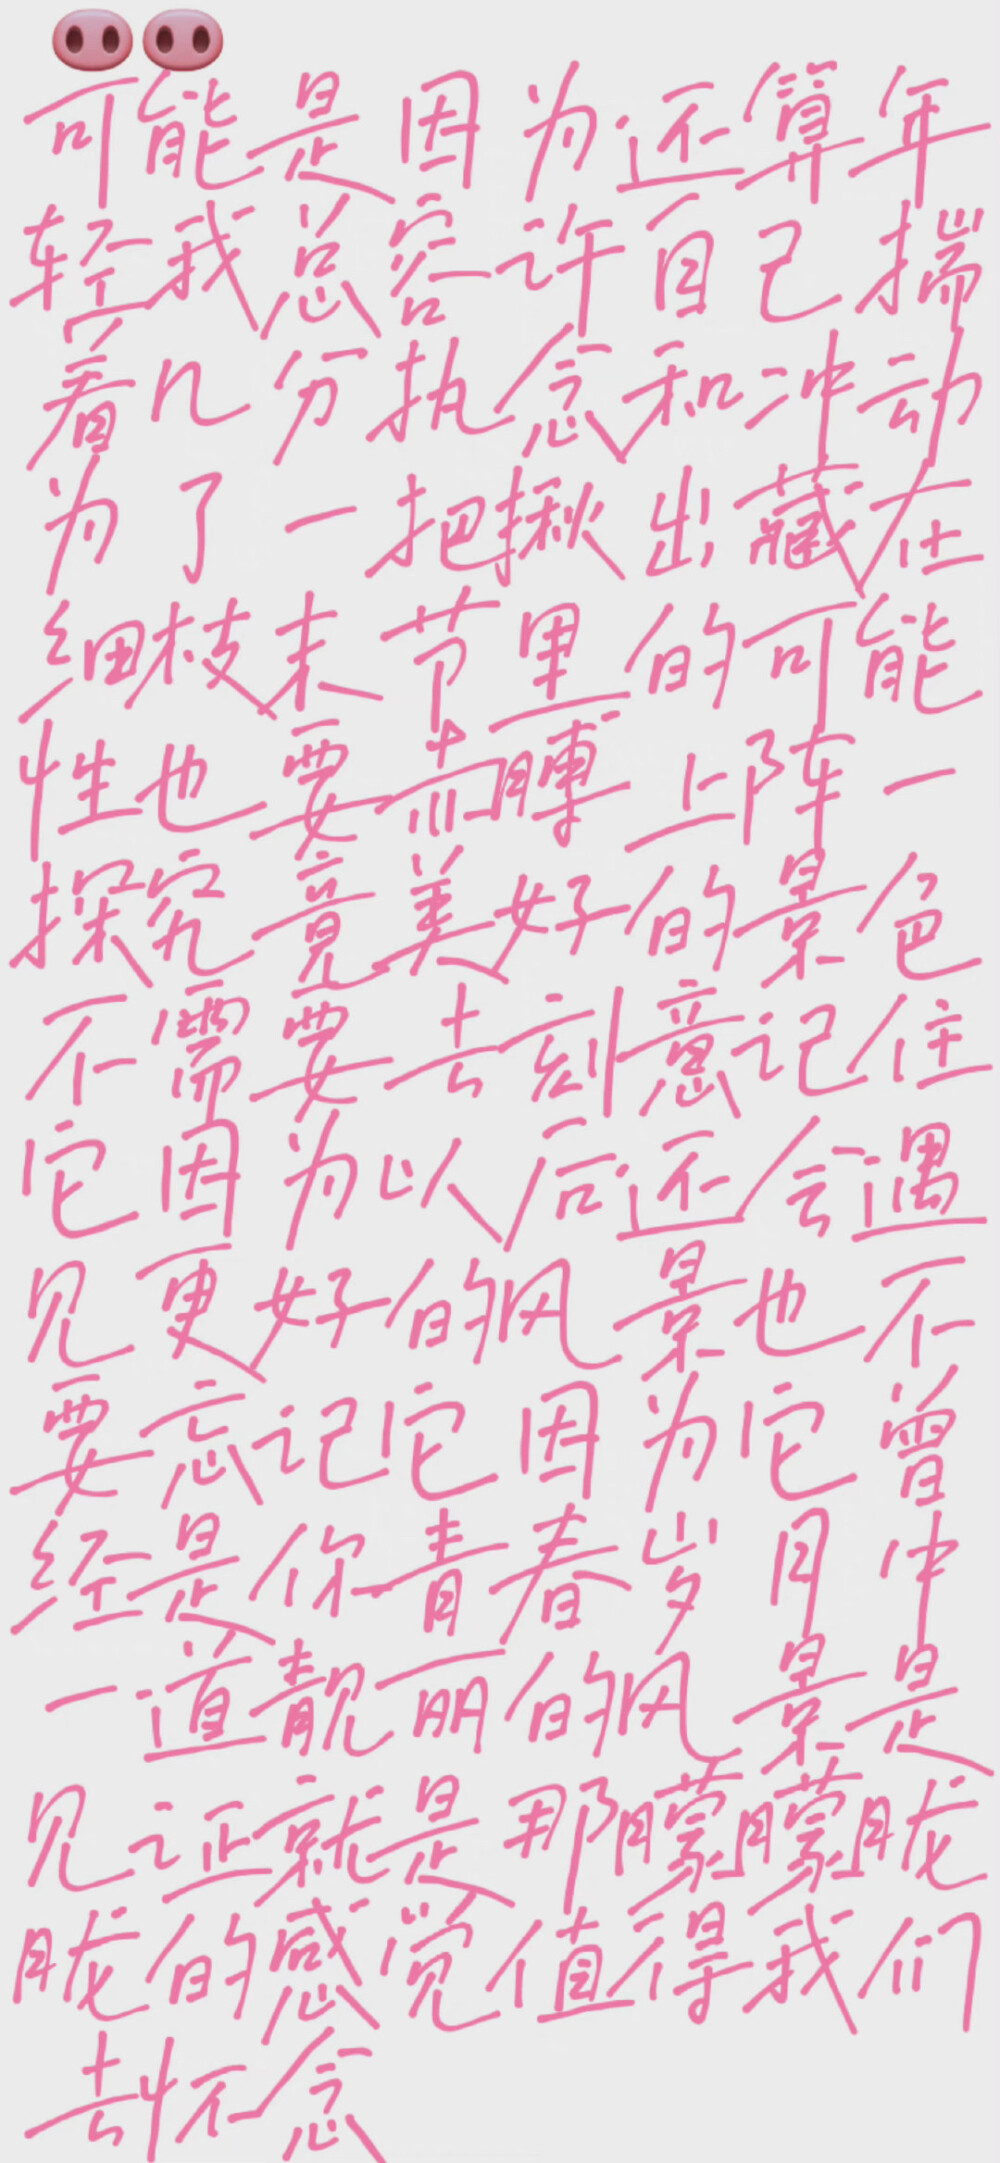 🐽🐽
可能是因为还算年
轻我总容许自己揣
着几分执念和冲动
为了一把揪出藏在
细枝末节里的可能
性也要赤膊上阵一
探究竟美好的景色
不需要去刻意记住
它因为以后还会遇
见更好的风景也不
要忘记它因为它曾
经是你青春岁月中
一道靓丽的风景是
见证就是那朦朦胧
胧的感觉值得我们
去怀念